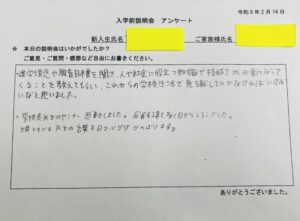 令和6年2月14日
入学前説明会 アンケート
新入生氏名
ご家族様氏名
☆ 本日の説明会はいかがでしたか?
ご意見・ご質問・感想など自由にお書きください。
建学理念や教育目標を聞き、人や社会に役立つ知識や技術が必要になって
くることを教えてもらい、これからの学校生活で意識していかなければいけ
ないなと思いました。
・学校長先生のセミナー 感動しました。
先生の言葉を
がんばります。
ありがとうございました。